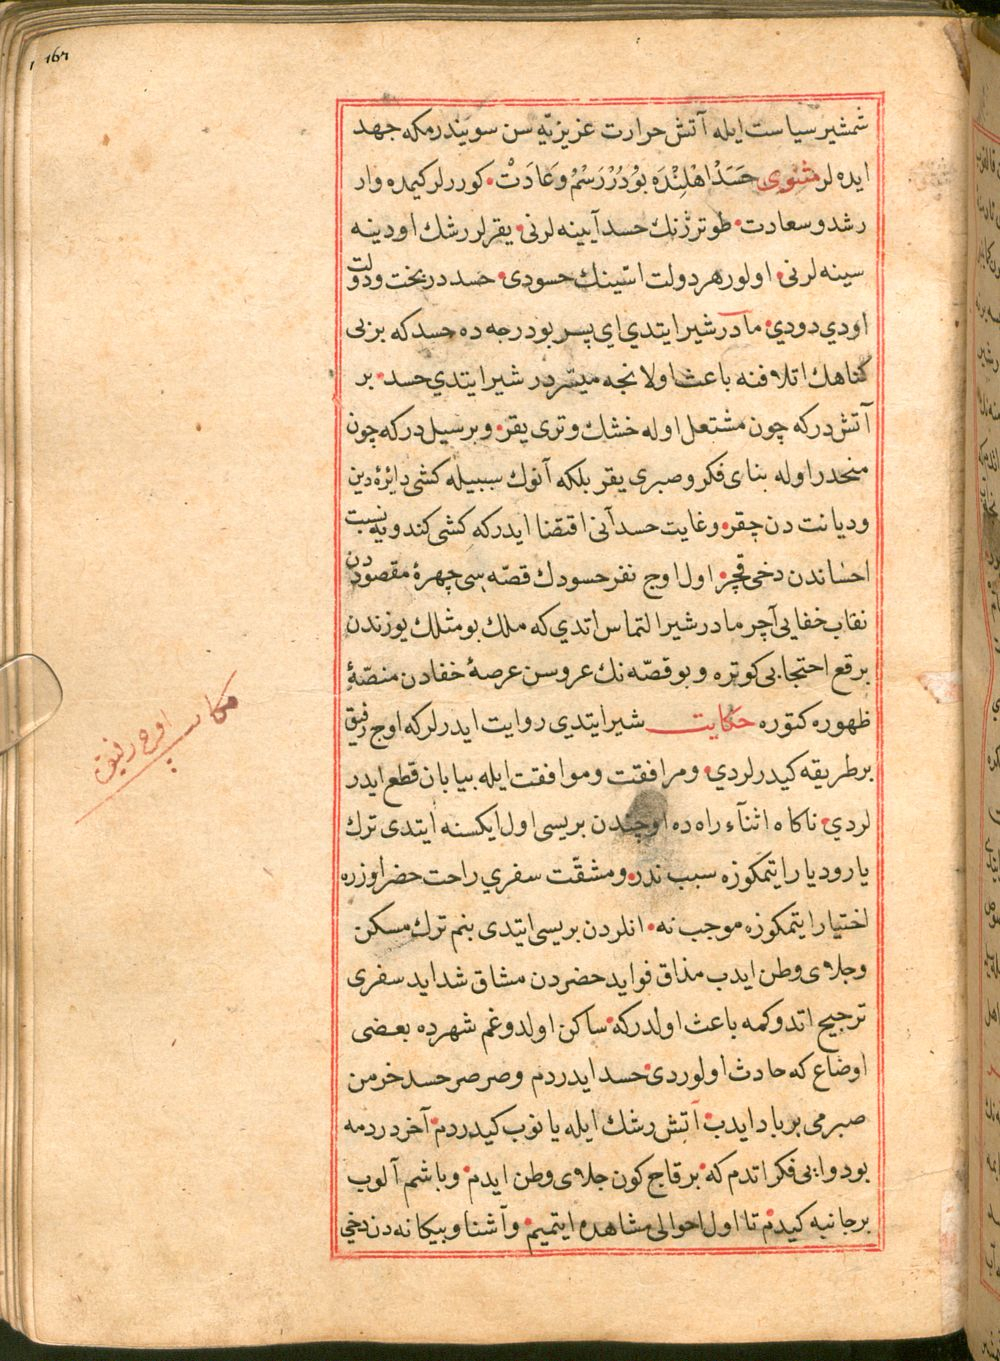 شمشیر سیاست ایله آتش حرارت عزیزیه سن سویندرمکه جهد
ایده لر مثنوی حَسَدْ اهْلِنْدَه بُودُرْ رَسْمُ وَعَادَتْ • کوررلر کیمده وار
رشد و سعادت • طوتر ژنك حسد آیینه لرنی • یقرلر رشك اودینه
سینه لرنی • اولور هر دولت اسّینك حسودی • حسد در بخت و دولت
اودي دودي • مادر شیر ایتدي ای پسر بو درجه ده حسد که بزبی
کناهك اتلافنه باعث اولا نجه میسّر در شیر ایتدي حسد • بر
آتش در که چون مشتعل اوله خشك و تری یقر • و بر سیل در که چون
منحدر اوله بنای فکر و صبری یقر بلکه آنوك سببیله کشی دایرۀ دین
و دیانت دن چقر • و غایت حسد آنی اقتضا ایدر که کشی کندویه نسبت
احساندن دخی قچر • اول اوج نفر حسودك قصّه سی چهرۀ مقصوددن
نقاب خفایی آچر مادر شیر التماس اتدی که ملك بو مثلك یوزندن
برقع احتجابی کوتره و بو قصّه نك عروسن عرصۀ خفادن منصّۀ
ظهوره کتوره حکایت شیر ایتدی روایت ایدرلر که اوج رفیق
بر طریقه کیدرلردي • و مرافقت و موافقت ایله بیابان قطع ایدر
لردي • ناکاه اثناء راه ده اوچندن بریسی اول ایکسنه ایتدی ترك
یار و دیار ایتمکوزه سبب ندر • و مشقّت سفري راحت حضر اوزره
اختیار ایتمکوزه موجب نه • انلردن بریسی ایتدی بنم ترك مسکن
و جلای وطن ایدب مذاق فواید حضردن مشاق شداید سفری
ترجیح اتدوکمه باعث اولدر که • ساکن اولدوغم شهرده بعضی
اوضاع که حادث اولوردی • حسد ایدردم و صرصر حسد خرمن
صبرمی بر باد ایدب • آتش رشك ایله یانوب کیدردم • آخر دردمه
بو دوایی فکر اتدم که • بر قاج کون جلای وطن ایدم • و باشم آلوب
بر جانبه کیدم • تا اول احوالی مشاهده ایتمیم • و آشنا و بیکانه دن دخی
اوچ رفیق